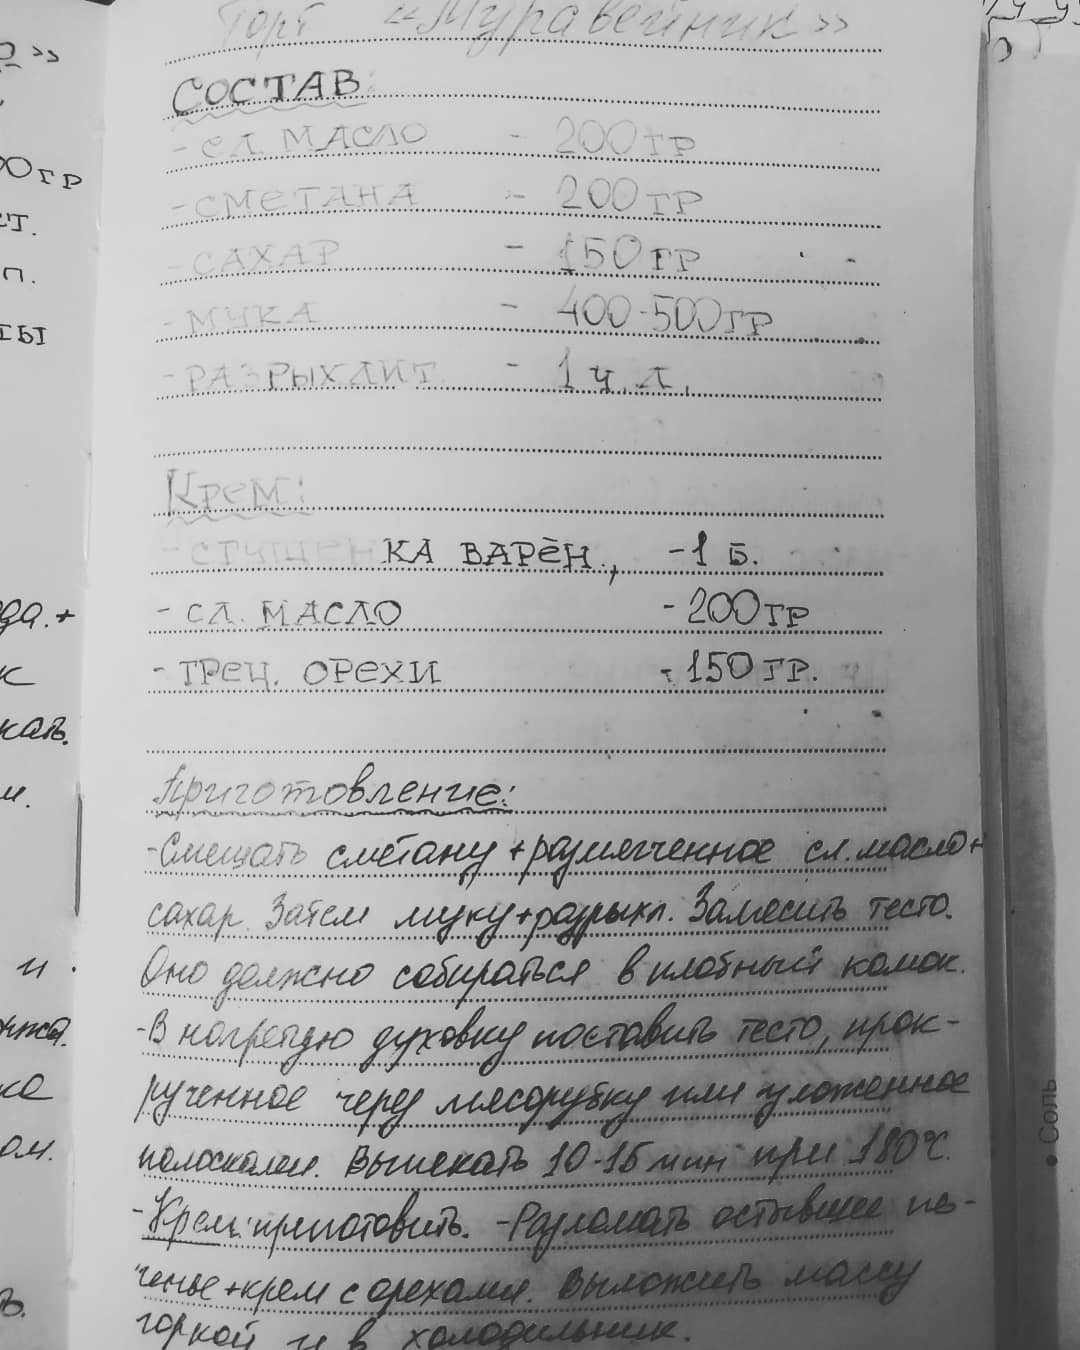 Торт «Муравейник»
СОСТАВ:
- СЛ. МАСЛО - 200 ГР
- СМЕТАНА - 200 ГР
- САХАР - 150 ГР
- МУКА - 400-500 ГР
- РАЗРЫХЛИТ. - 1 ч. Л.
Крем:
- СГУЩЕНКА ВАРЁН., - 1 Б.
- СЛ. МАСЛО - 200 ГР
- ГРЕЦ. ОРЕХИ - 150 ГР.
Приготовление:
- Смешать сметану + размягченное сл. масло +
сахар. Затем муку + разрыхл. Замесить тесто.
Оно должно собираться в плотный комок.
- В нагретую духовку поставить тесто, прок-
рученное через мясорубку или уложенное
полосками. Выпекать 10-15 мин при 180°С.
- Крем: приготовить. - Разломать остывшее пе-
ченье + крем с орехами. Выложить массу
горкой и в холодильник.
»
00 ГР
СТ.
П.
ТЫ
да. +
к
кать.
м.
и
ка
ом.
• Соль